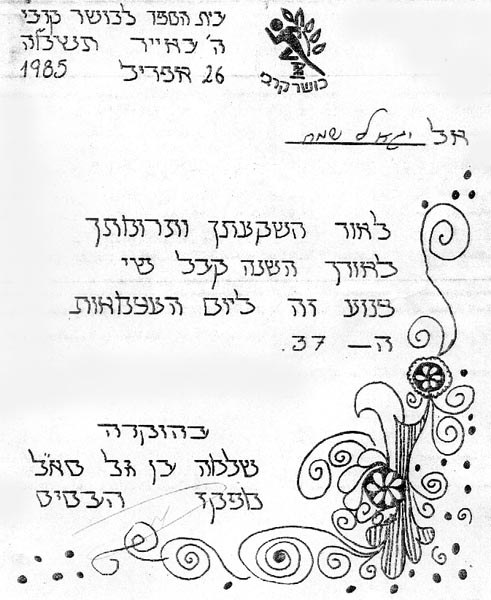 בית הספר לכושר קרבי
ה' באייר תשמ"ה
26 אפריל 1985
כושר קרבי
אל יגאל שמח
לאור השקעתך ותרומתך
לאורך השנה קבל שי
צנוע זה ליום העצמאות
ה– 37.
בהוקרה
שלמה בן גל סא"ל
מפקד הבסיס